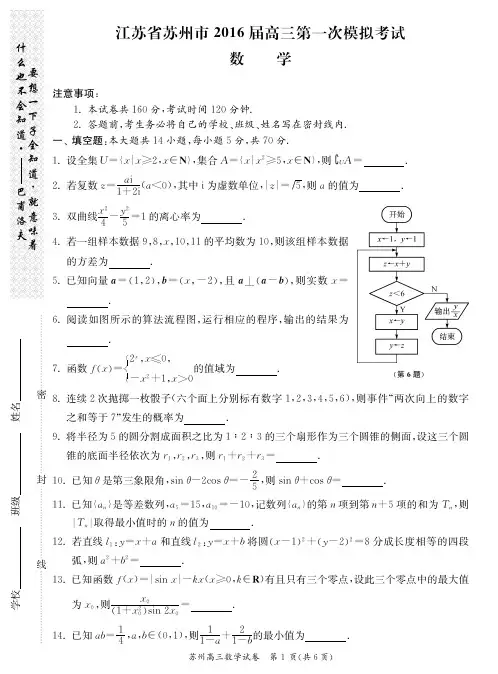 江苏省苏州市 2016 届高三第一次模拟考试
数 学
注意事项：
1. 本试卷共 160 分,考试时间 120 分钟.
2. 答题前,考生务必将自己的学校、班级、姓名写在密封线内.
一、填空题:本大题共 14 小题,每小题 5 分,共 70 分.
1. 设全集 U={x|x≥2,x∈N},集合 A={x|x²≥5,x∈N},则∁UA= .
2. 若复数 z=ai/(1+2i)(a<0),其中 i 为虚数单位,|z|=√5,则 a 的值为 .
3. 双曲线x²/4-y²/5=1 的离心率为 .
4. 若一组样本数据 9,8,x,10,11 的平均数为 10,则该组样本数据
的方差为 .
5. 已知向量 a=(1,2),b=(x,-2),且 a⊥(a-b),则实数 x=
.
6. 阅读如图所示的算法流程图,运行相应的程序,输出的结果为
.
开始
x←1, y←1
z←x+y
z<6
N
Y
输出 y/x
x←y
结束
y←z
(第 6 题)
7. 函数 f(x)={2ˣ,x≤0, -x²+1,x>0 的值域为 .
8. 连续 2 次抛掷一枚骰子(六个面上分别标有数字 1,2,3,4,5,6),则事件“两次向上的数字
之和等于 7”发生的概率为 .
9. 将半径为 5 的圆分割成面积之比为 1∶2∶3 的三个扇形作为三个圆锥的侧面,设这三个圆
锥的底面半径依次为 r₁,r₂,r₃,则 r₁+r₂+r₃= .
10. 已知 θ 是第三象限角,sin θ-2cos θ=-2/5,则 sin θ+cos θ= .
11. 已知{aₙ}是等差数列,a₅=15,a₁₀=-10,记数列{aₙ}的第 n 项到第 n+5 项的和为 Tₙ,则
|Tₙ|取得最小值时的 n 的值为 .
12. 若直线 l₁:y=x+a 和直线 l₂:y=x+b 将圆(x-1)²+(y-2)²=8 分成长度相等的四段
弧,则 a²+b²= .
13. 已知函数 f(x)=|sin x|-kx(x≥0,k∈R)有且只有三个零点,设此三个零点中的最大值
为 x₀,则x₀/((1+x₀²)sin 2x₀)= .
14. 已知 ab=1/4,a,b∈(0,1),则1/(1-a)+2/(1-b)的最小值为 .
苏州高三数学试卷 第 1 页(共 6 页)
要想一下子全知道,就意味着
什么也不会知道。——巴甫洛夫
密
封
线
姓名
班级
学校